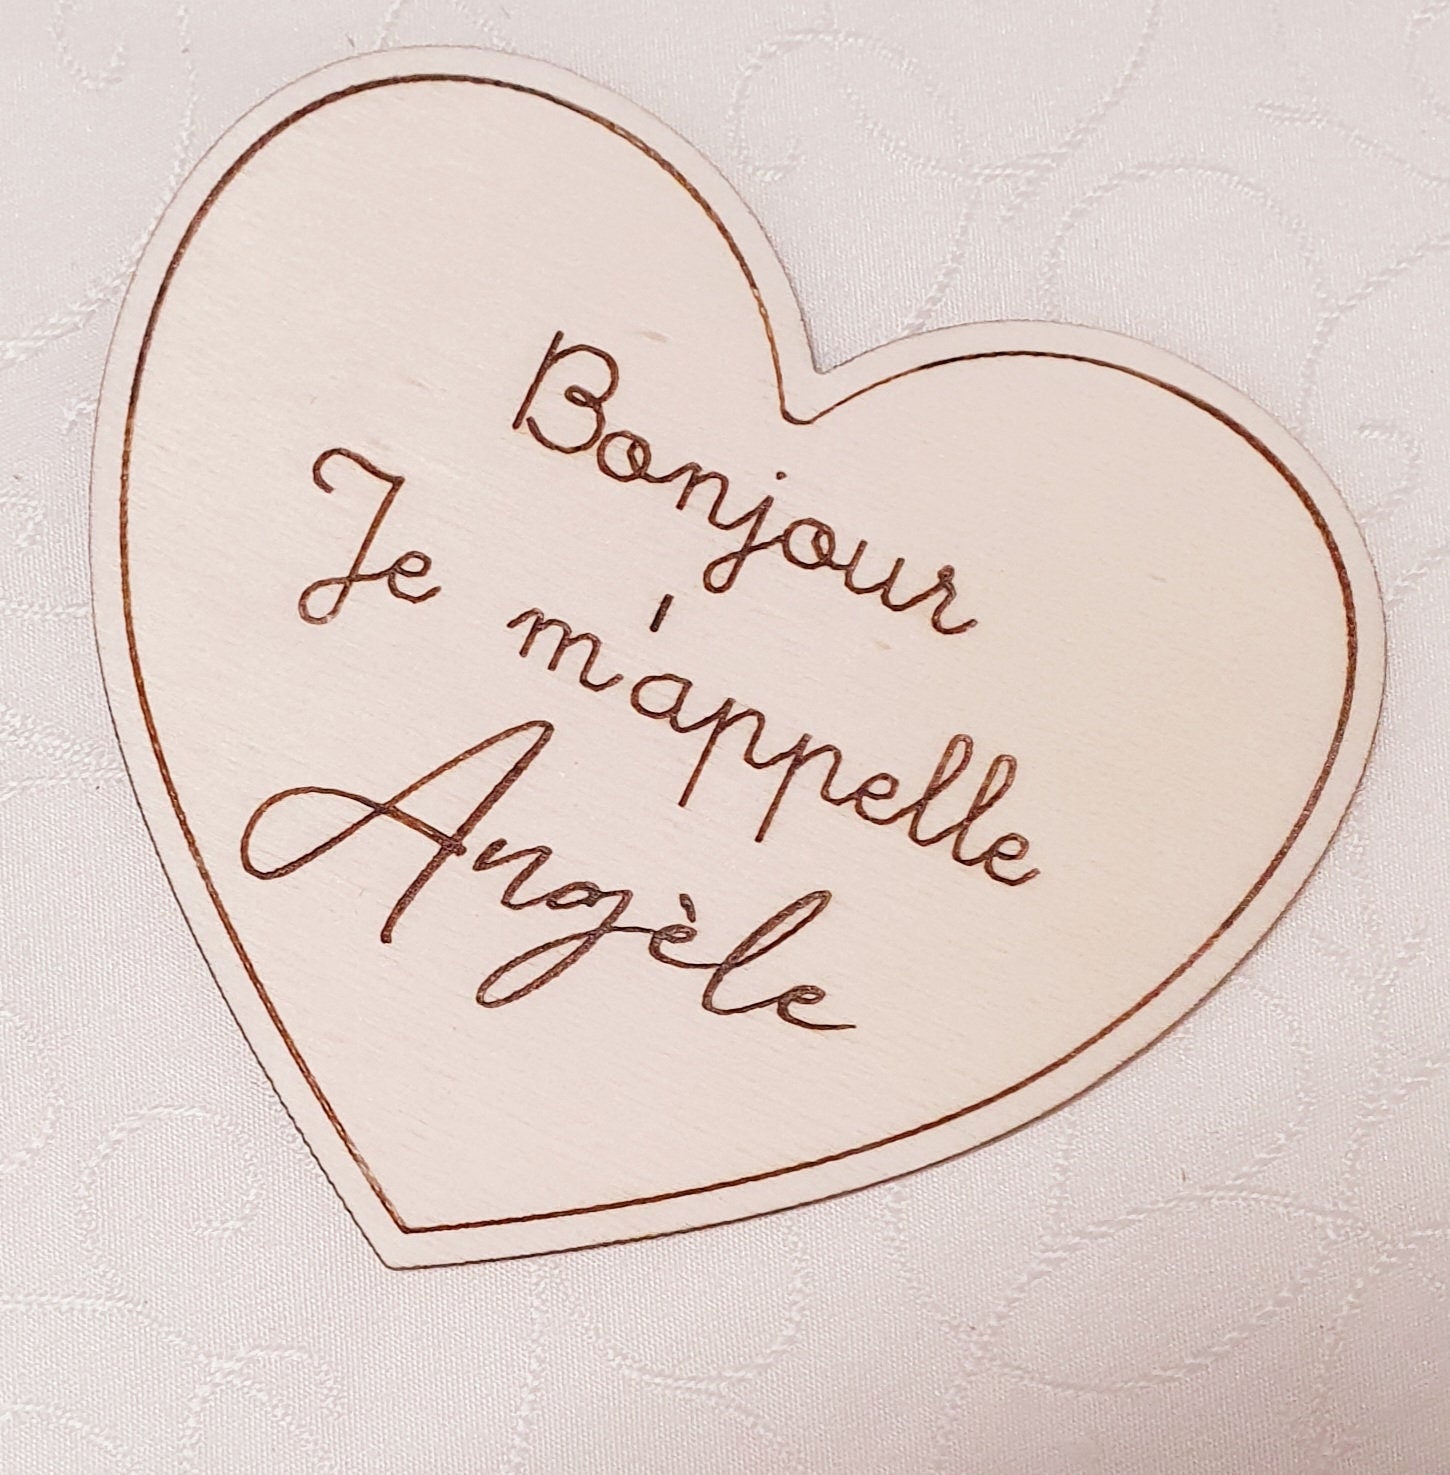 Bonjour
Je m'appelle
Angèle